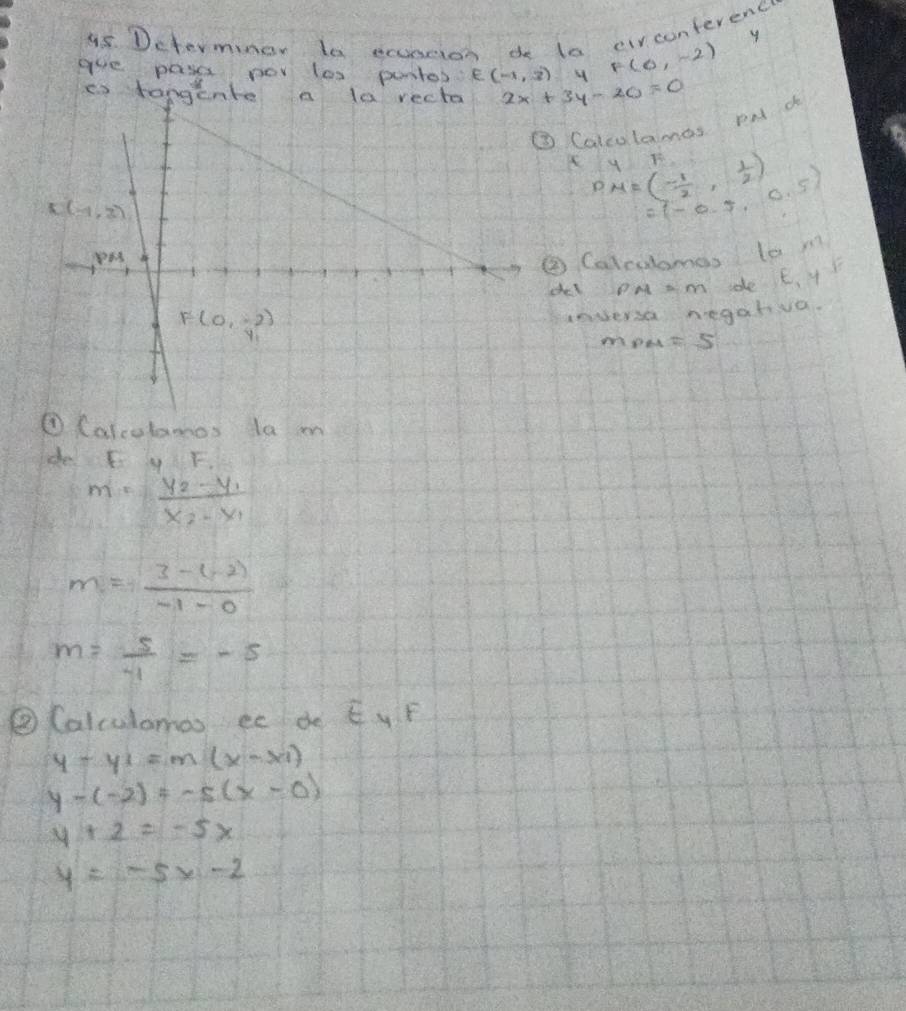 45. Determinar la ecuación de la circunferencia
que pasa por los puntos: E(-1, 3) y F(0, -2) y
es tangente a la recta 2x + 3y - 20 = 0
③ Calculamos PM de
E y F.
PM = (-1/2, 1/2)
= (-0.5, 0.5)
E(-1, 3)
PM
F(0, -2)
y₁
② Calculamos la m
del PM = m de E, y F
inversa negativa.
mPM = 5
① Calculamos la m
de E y F.
m = y₂ - y₁ / x₂ - x₁
m = 3 - (-2) / -1 - 0
m = 5/-1 = -5
② Calculamos ec de E y F
y - y1 = m (x - x1)
y - (-2) = -5(x - 0)
y + 2 = -5x
y = -5x - 2